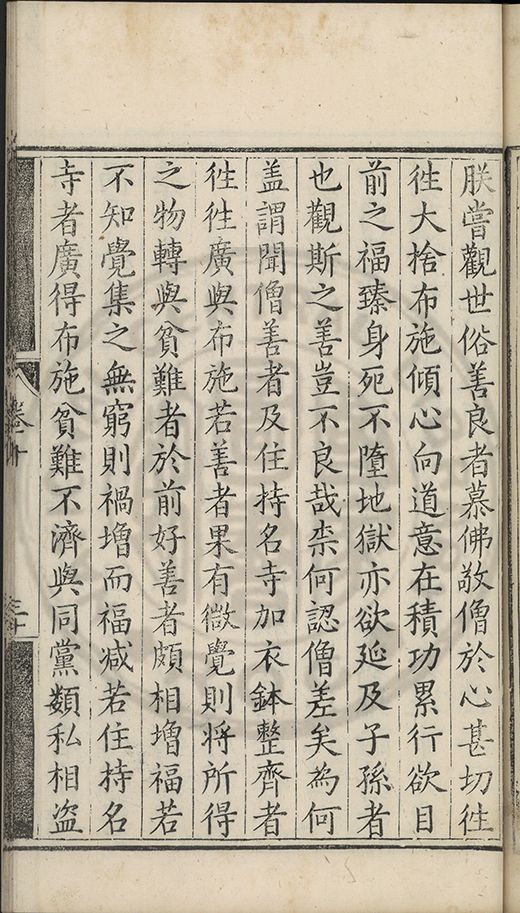 朕嘗觀世俗善良者慕佛敬僧於心甚切徃
徃大捨布施傾心向道意在積功累行欲目
前之福臻身死不墮地獄亦欲延及子孫者
也觀斯之善豈不良哉柰何認僧差矣為何
盖謂聞僧善者及住持名寺加衣鉢整齊者
徃徃廣與布施若善者果有微覺則將所得
之物轉與貧難者於前好善者頗相增福若
不知覺集之無窮則禍增而福减若住持名
寺者廣得布施貧難不濟與同黨類私相盜
卷十